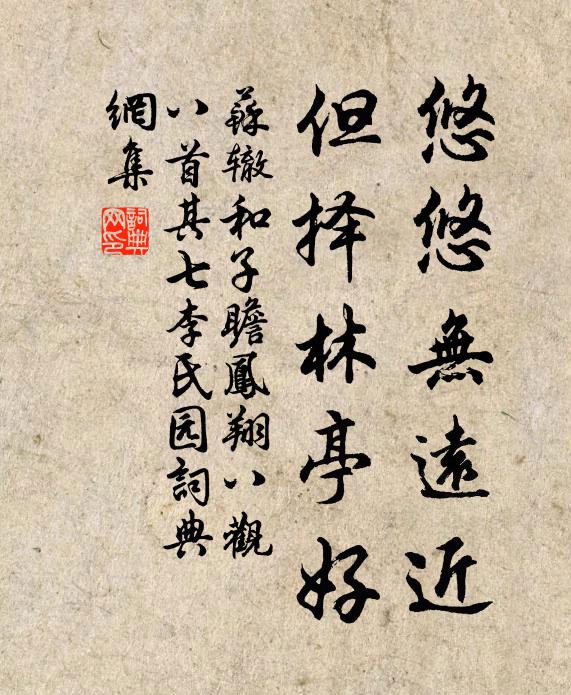 悠悠無遠近
但择林亭好
蘇辙和子瞻鳳翔八觀
八首其七李氏园詞典
網集
詞典网印